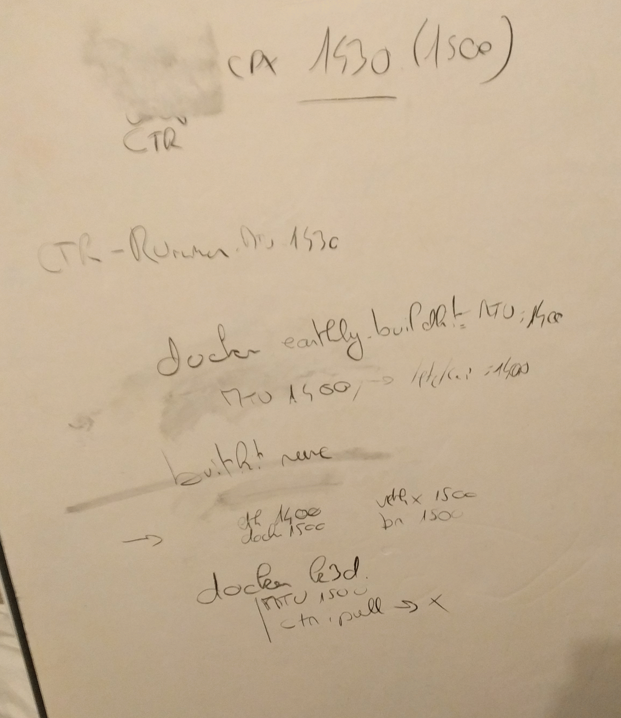 CPX 1430 (1500)
CTR
CTR-Runner. 1430
docker earthly.buildkit: MTU: 1400
MTU 1400, →
buildkit
eth 1400 vethx 1500
→ dock 1500 br 1500
docker k3d.
MTU 1500
ctr. pull → x